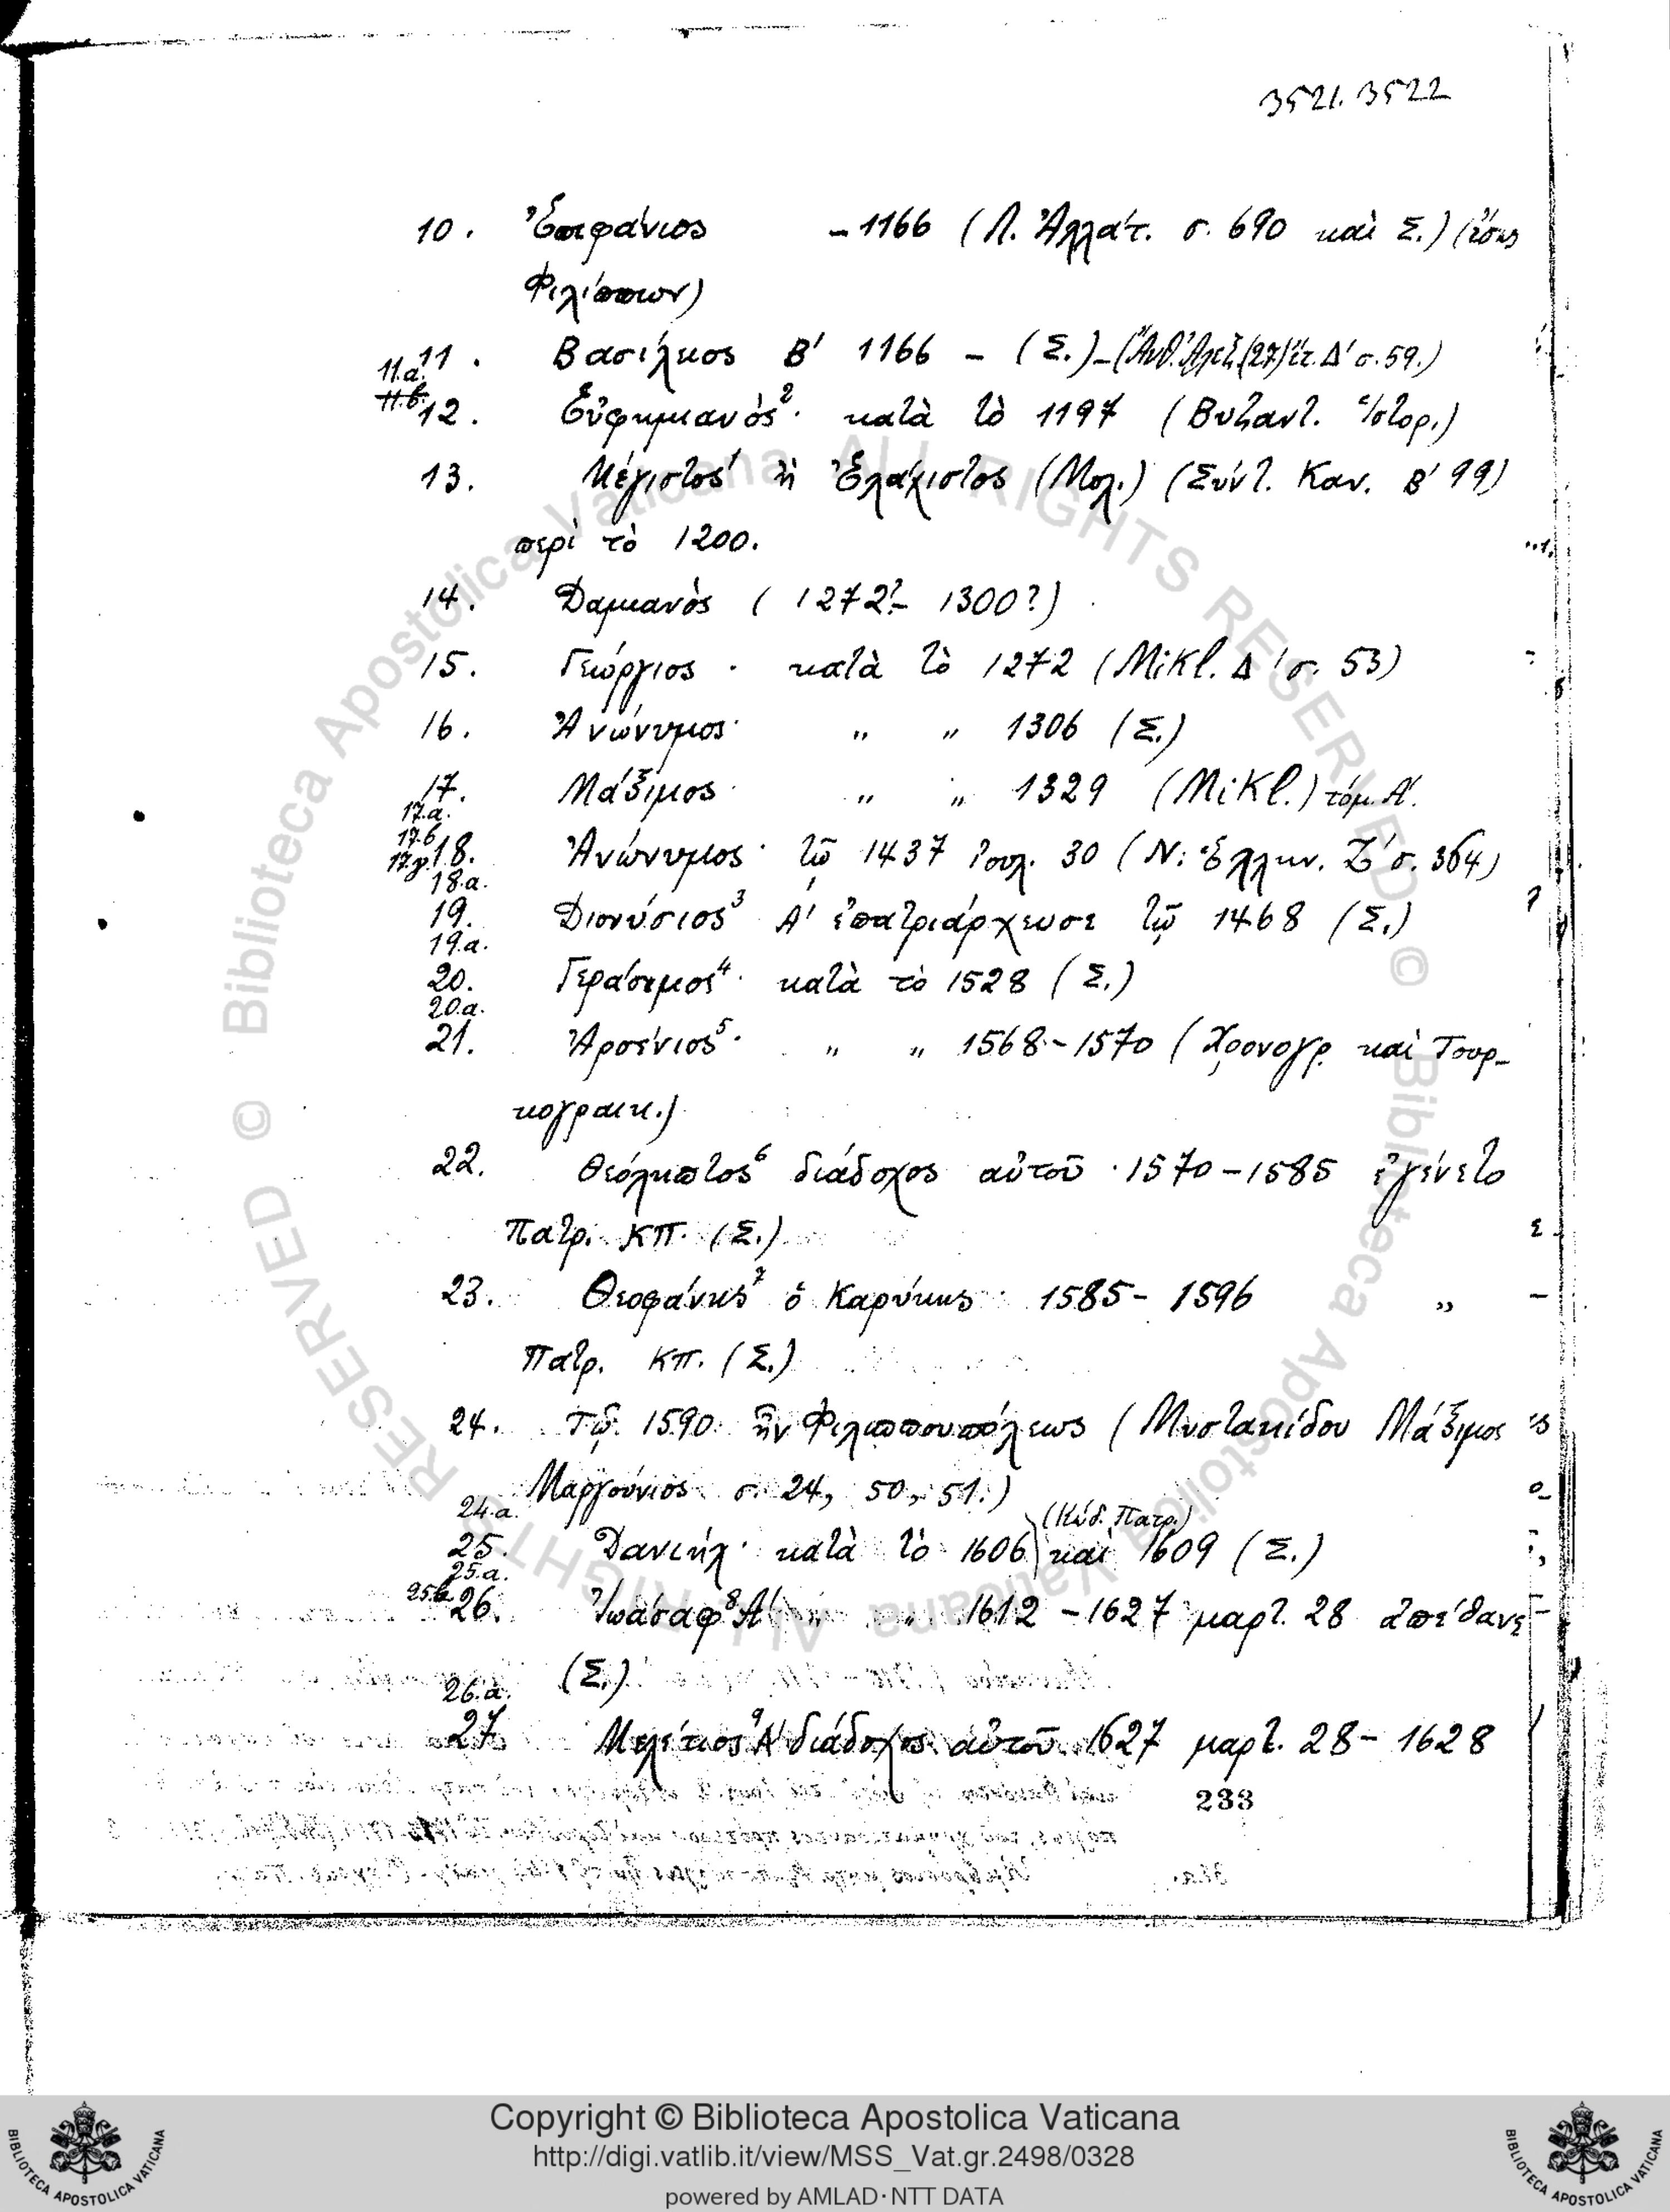 3521. 3522
10. Ἐπιφάνιος – 1166 (Λ. Ἀλλάτ. σ. 690 καὶ Σ.) (ἴσως
Φιλίππων)
11. Βασίλειος Β′ 1166 – (Σ.) – (Ἀνθ. Ἀλεξ. (27) ἔτ. Δ′ σ. 59.)
11.α.
11.β.
12. Εὐφημιανὸς² · κατὰ τὸ 1197 (Βυζαντ. Ἱστορ.)
13. Μέγιστος¹ ἢ Ἐλάχιστος (Μολ.) (Σύντ. Καν. Β′ 99)
περὶ τὸ 1200.
14. Δαμιανὸς (1272?– 1300?)
15. Γεώργιος · κατὰ τὸ 1272 (Mikl. Δ′ σ. 53)
16. Ἀνώνυμος · „ „ 1306 (Σ.)
17. Μάξιμος · „ „ 1329 (Mikl.) τόμ. Α′.
17.α.
17.β
17.γ.
18. Ἀνώνυμος · τῷ 1437 Ἰουλ. 30 (Ν: Ἑλλην. Ζ′ σ. 364)
18.α.
19. Διονύσιος³ Α′ ἐπατριάρχευσε τῷ 1468 (Σ.)
19.α.
20. Γεράσιμος⁴ · κατὰ τὸ 1528 (Σ.)
20.α.
21. Ἀρσένιος⁵ · „ „ 1568 – 1570 (Χρονογρ. καὶ Τουρ–
κογραικ.)
22. Θεόληπτος⁶ διάδοχος αὐτοῦ · 1570 – 1585 ἐγένετο
Πατρ. ΚΠ. (Σ.)
23. Θεοφάνης⁷ ὁ Καρύκης · 1585 – 1596 „
Πατρ. ΚΠ. (Σ.)
24. Τῷ 1590 ἦν Φιλιππουπόλεως (Μυστακίδου Μάξιμος
Μαργούνιος σ. 24, 50, 51.)
24.α.
(Κώδ. Πατρ.)
25. Δανιὴλ · κατὰ τὸ 1606) καὶ 1609 (Σ.)
25.α.
25.β.
26. Ἰωάσαφ⁸ Α′ „ „ 1612 – 1627 μαρτ. 28 ἀπέθανε
(Σ.)
26.α.
27. Μελέτιος⁹ Α′ διάδοχος αὐτοῦ 1627 μαρτ. 28 – 1628
233
© Biblioteca Apostolica Vaticana ALL RIGHTS RESERVED © Biblioteca Apostolica Vaticana ALL RIGHTS RESERVED
Copyright © Biblioteca Apostolica Vaticana
http://digi.vatlib.it/view/MSS_Vat.gr.2498/0328
powered by AMLAD·NTT DATA
BIBLIOTECA APOSTOLICA VATICANA
BIBLIOTECA APOSTOLICA VATICANA